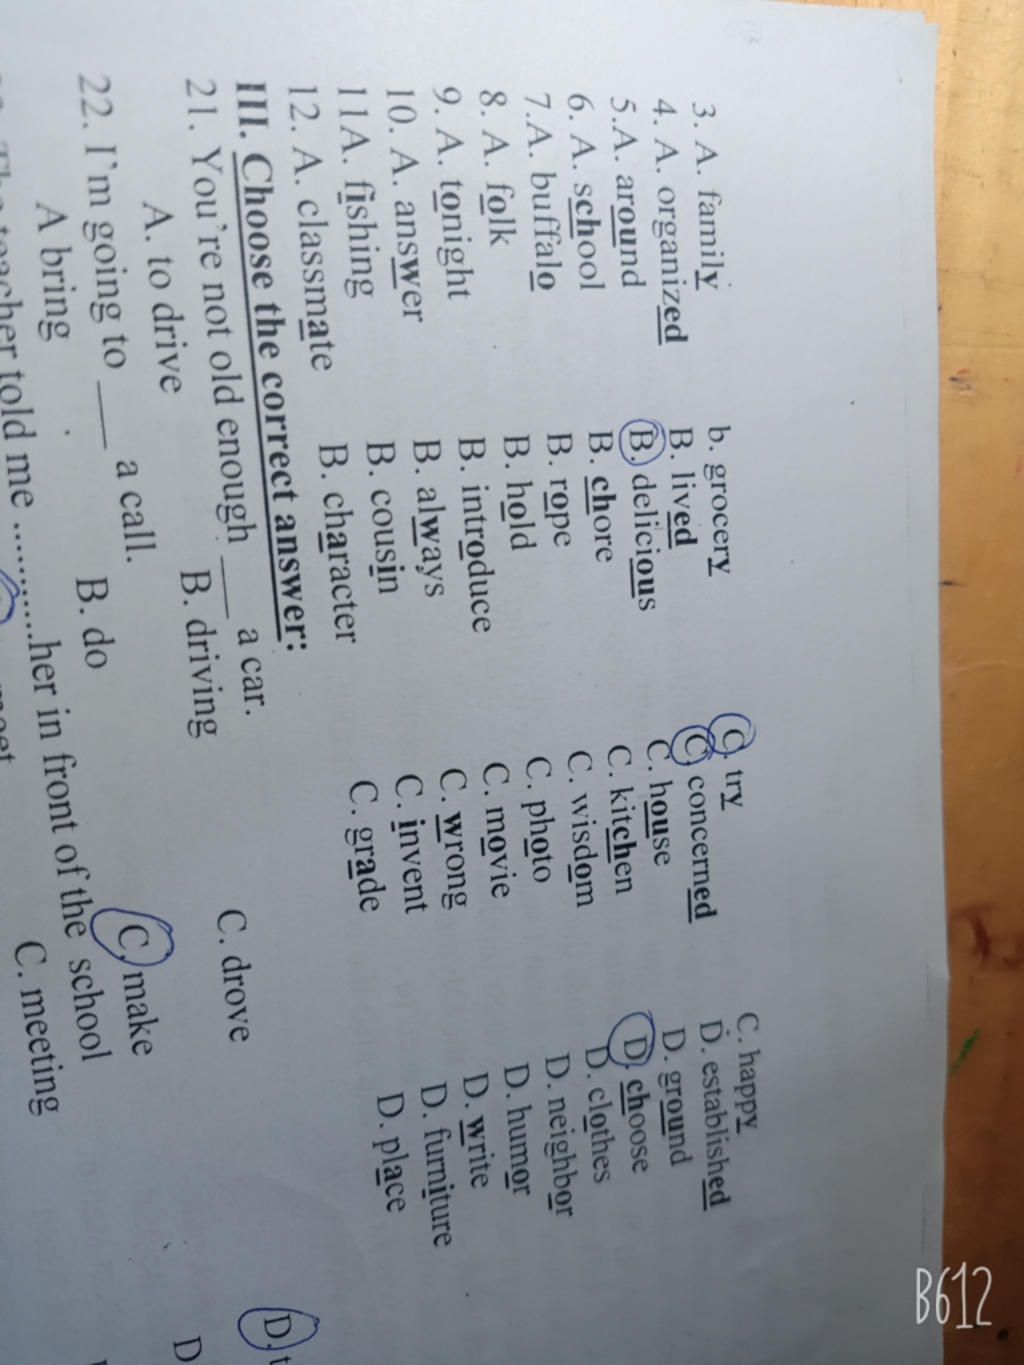 3. A. family b. grocery C. try C. happy
4. A. organized B. lived C. concerned D. established
5.A. around B. delicious C. house D. ground
6. A. school B. chore C. kitchen D. choose
7.A. buffalo B. rope C. wisdom D. clothes
8. A. folk B. hold C. photo D. neighbor
9. A. tonight B. introduce C. movie D. humor
10. A. answer B. always C. wrong D. write
11A. fishing B. cousin C. invent D. furniture
12. A. classmate B. character C. grade D. place
III. Choose the correct answer:
21. You're not old enough ___ a car.
A. to drive B. driving C. drove D.
22. I'm going to ___ a call.
A bring B. do C. make D
teacher told me ...........her in front of the school
C. meeting
B612